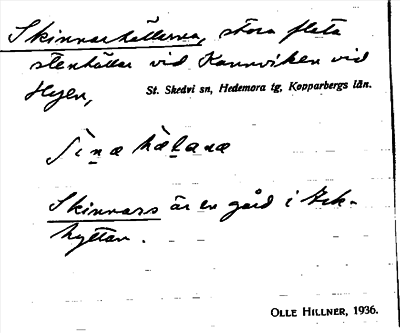 Skinnarhällarna, stora flata
stenhällar vid Kannviken vid
Hyen, St. Skedvi sn, Hedemora tg, Kopparbergs län.
Skinnars är en gård i
hyttan.
OLLE HILLNER, 1936.